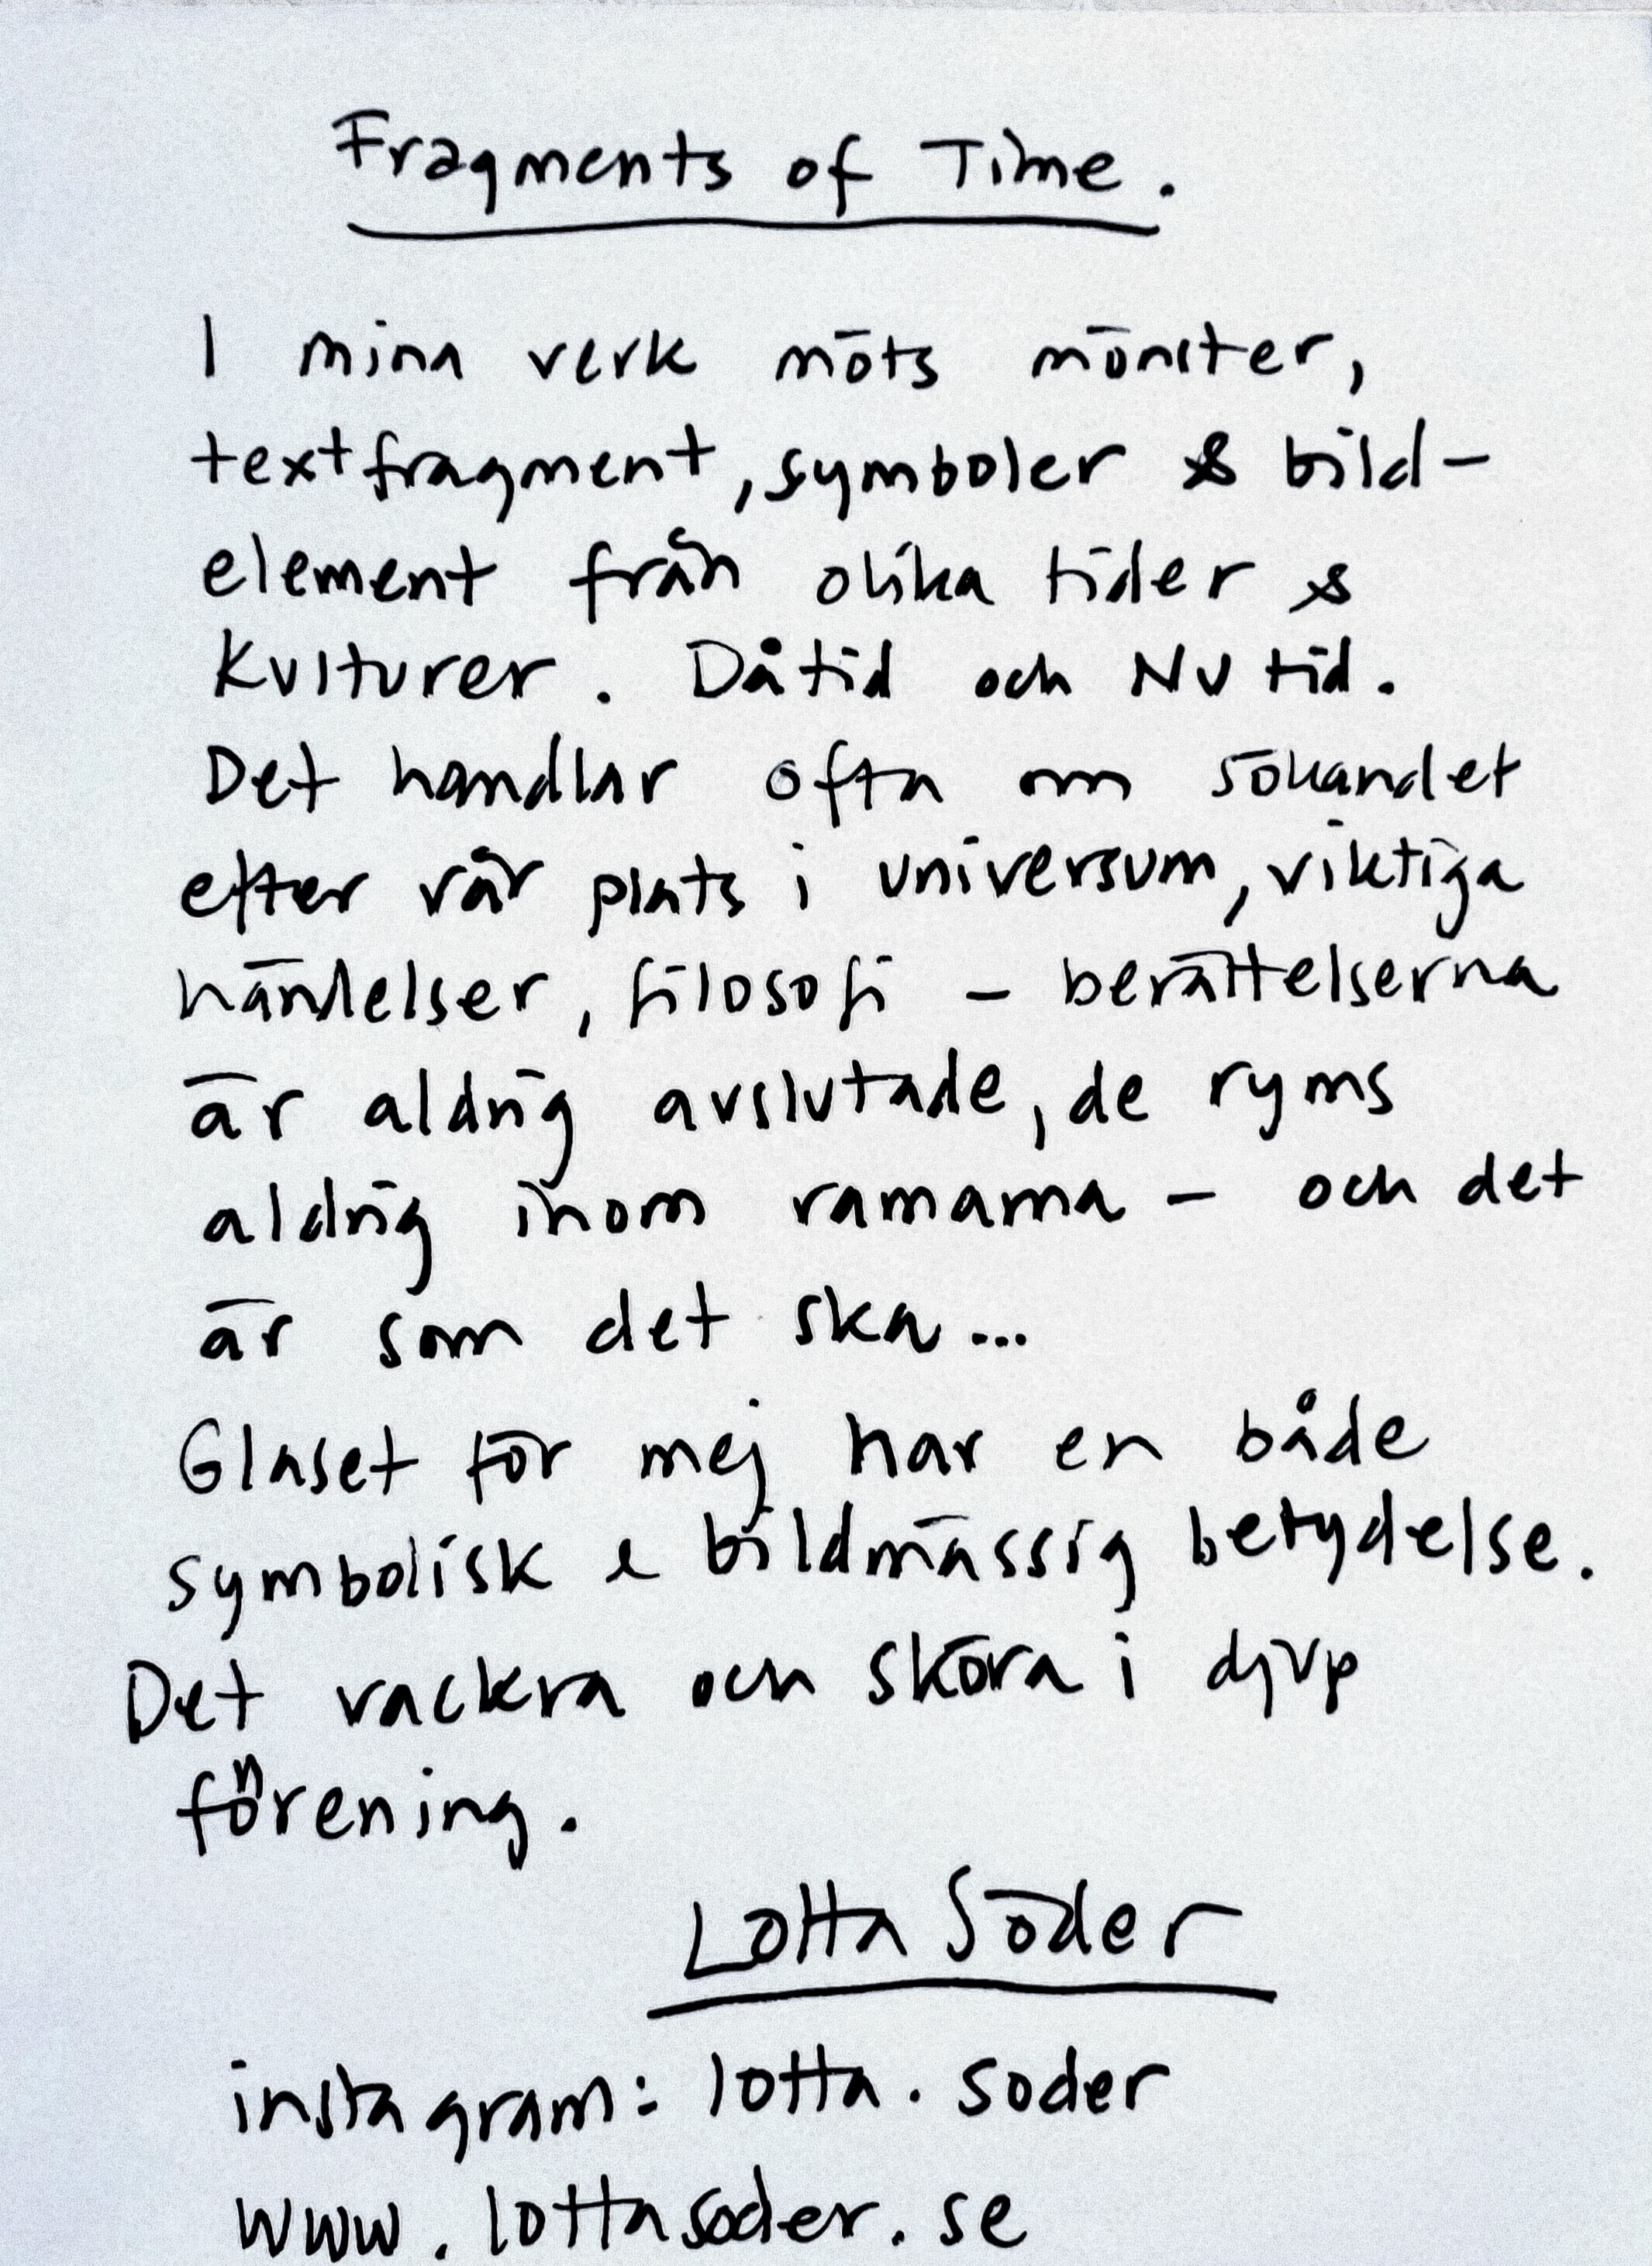 Fragments of Time.
I mina verk möts mönster,
textfragment, symboler & bild-
element från olika tider &
kulturer. Dåtid och Nutid.
Det handlar ofta om sökandet
efter vår plats i universum, viktiga
händelser, filosofi – berättelserna
är aldrig avslutade, de ryms
aldrig inom ramarna – och det
är som det ska...
Glaset för mej har en både
symbolisk & bildmässig betydelse.
Det vackra och sköra i djup
förening.
Lotta Söder
instagram: lotta.soder
www.lottasoder.se